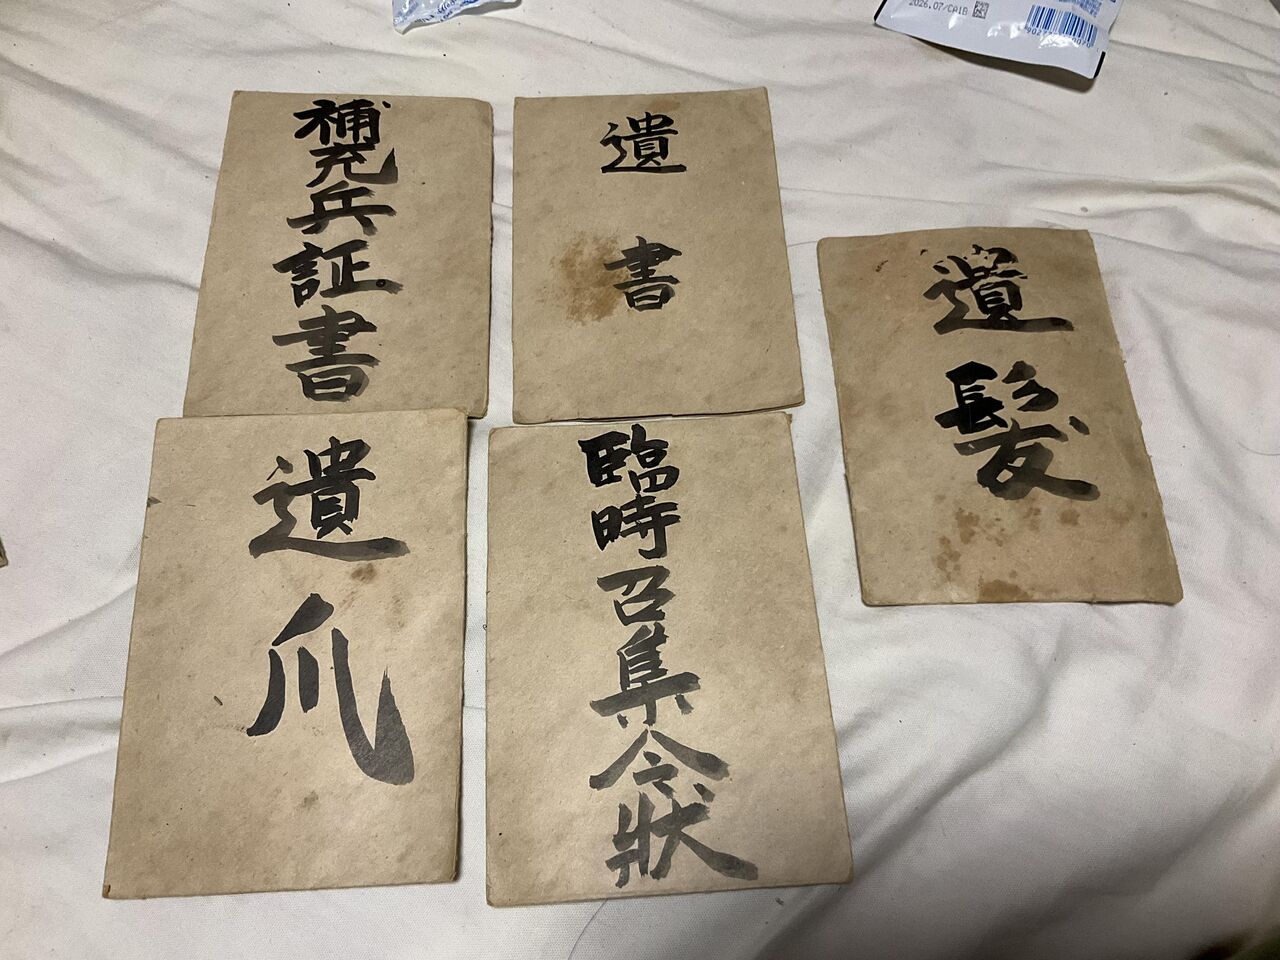 補充兵証書
遺書
遺髪
遺爪
臨時召集令状
2026.07/CA1B